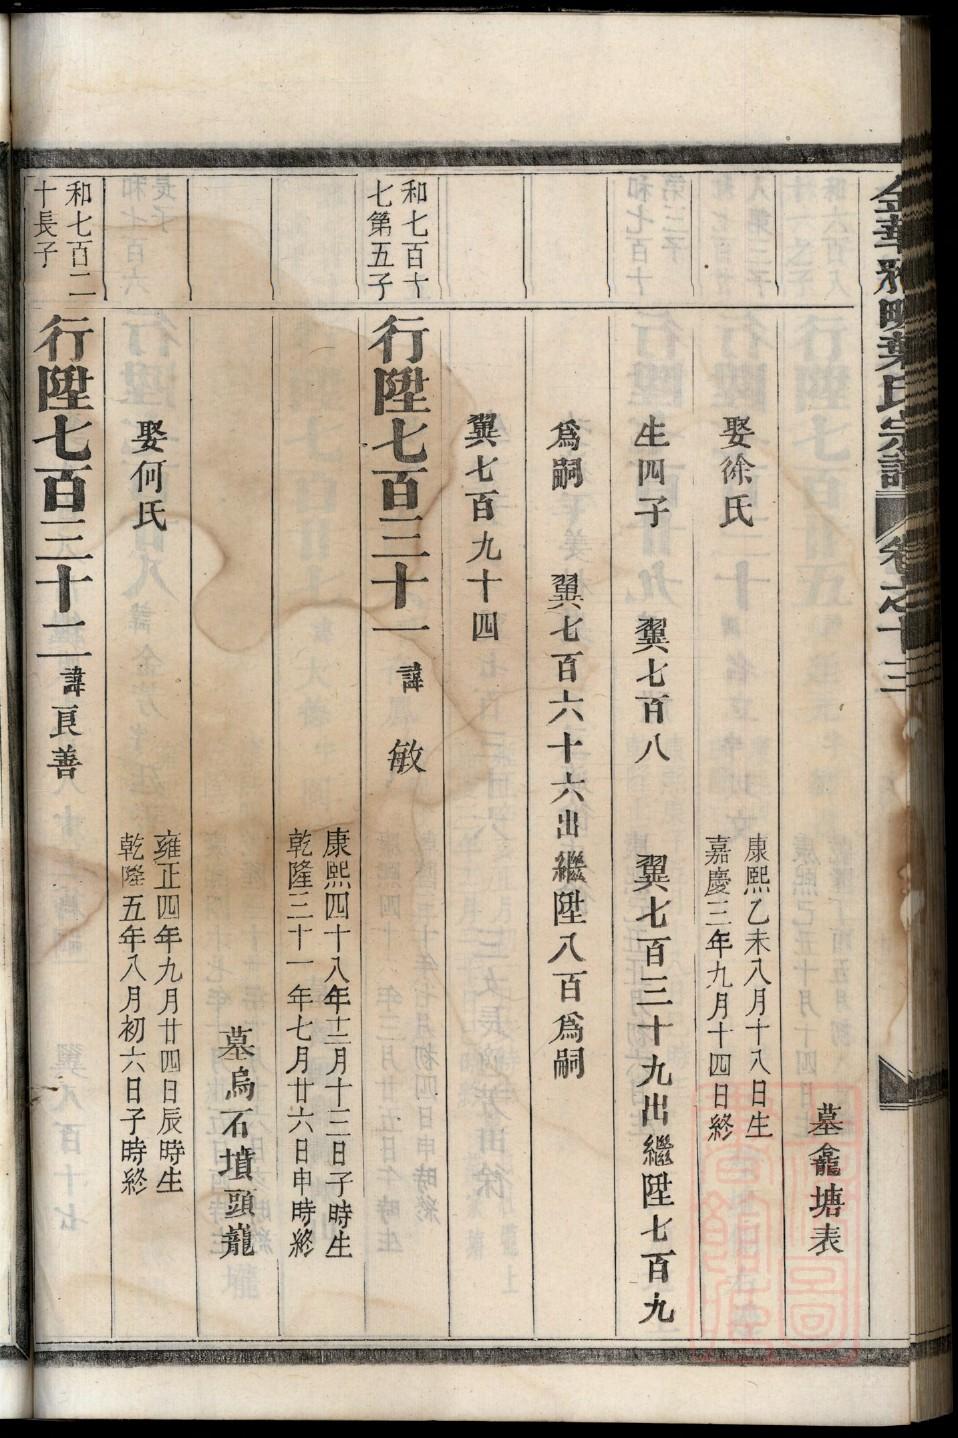 金華
葉氏宗譜
卷之十三
墓龕塘表
娶徐氏
康熙乙未八月十八日生
嘉慶三年九月十四日終
生四子 翼七百八 翼七百三十九出繼陞七百九
爲嗣 翼七百六十六出繼陞八百爲嗣
翼七百九十四
和七百十
七第五子
行陞七百三十一 諱 敏
康熙四十八年十二月十三日子時生
乾隆三十一年七月廿六日申時終
墓烏石墳頭巃
娶何氏
雍正四年九月廿四日辰時生
乾隆五年八月初六日子時終
和七百二
十長子
行陞七百三十二 諱良善